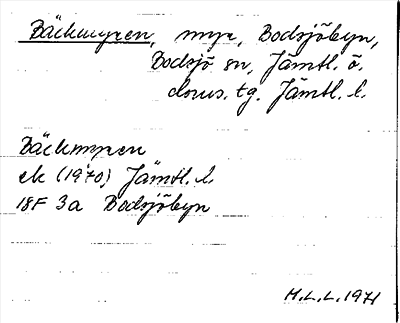 Bäckmyren, myr, Bodsjöbyn,
Bodsjö sn, Jämtl. ö.
doms. tg. Jämtl. l.
Bäckmyren
ek (1970) Jämtl. l.
18F 3a Bodsjöbyn
H.L.L. 1971